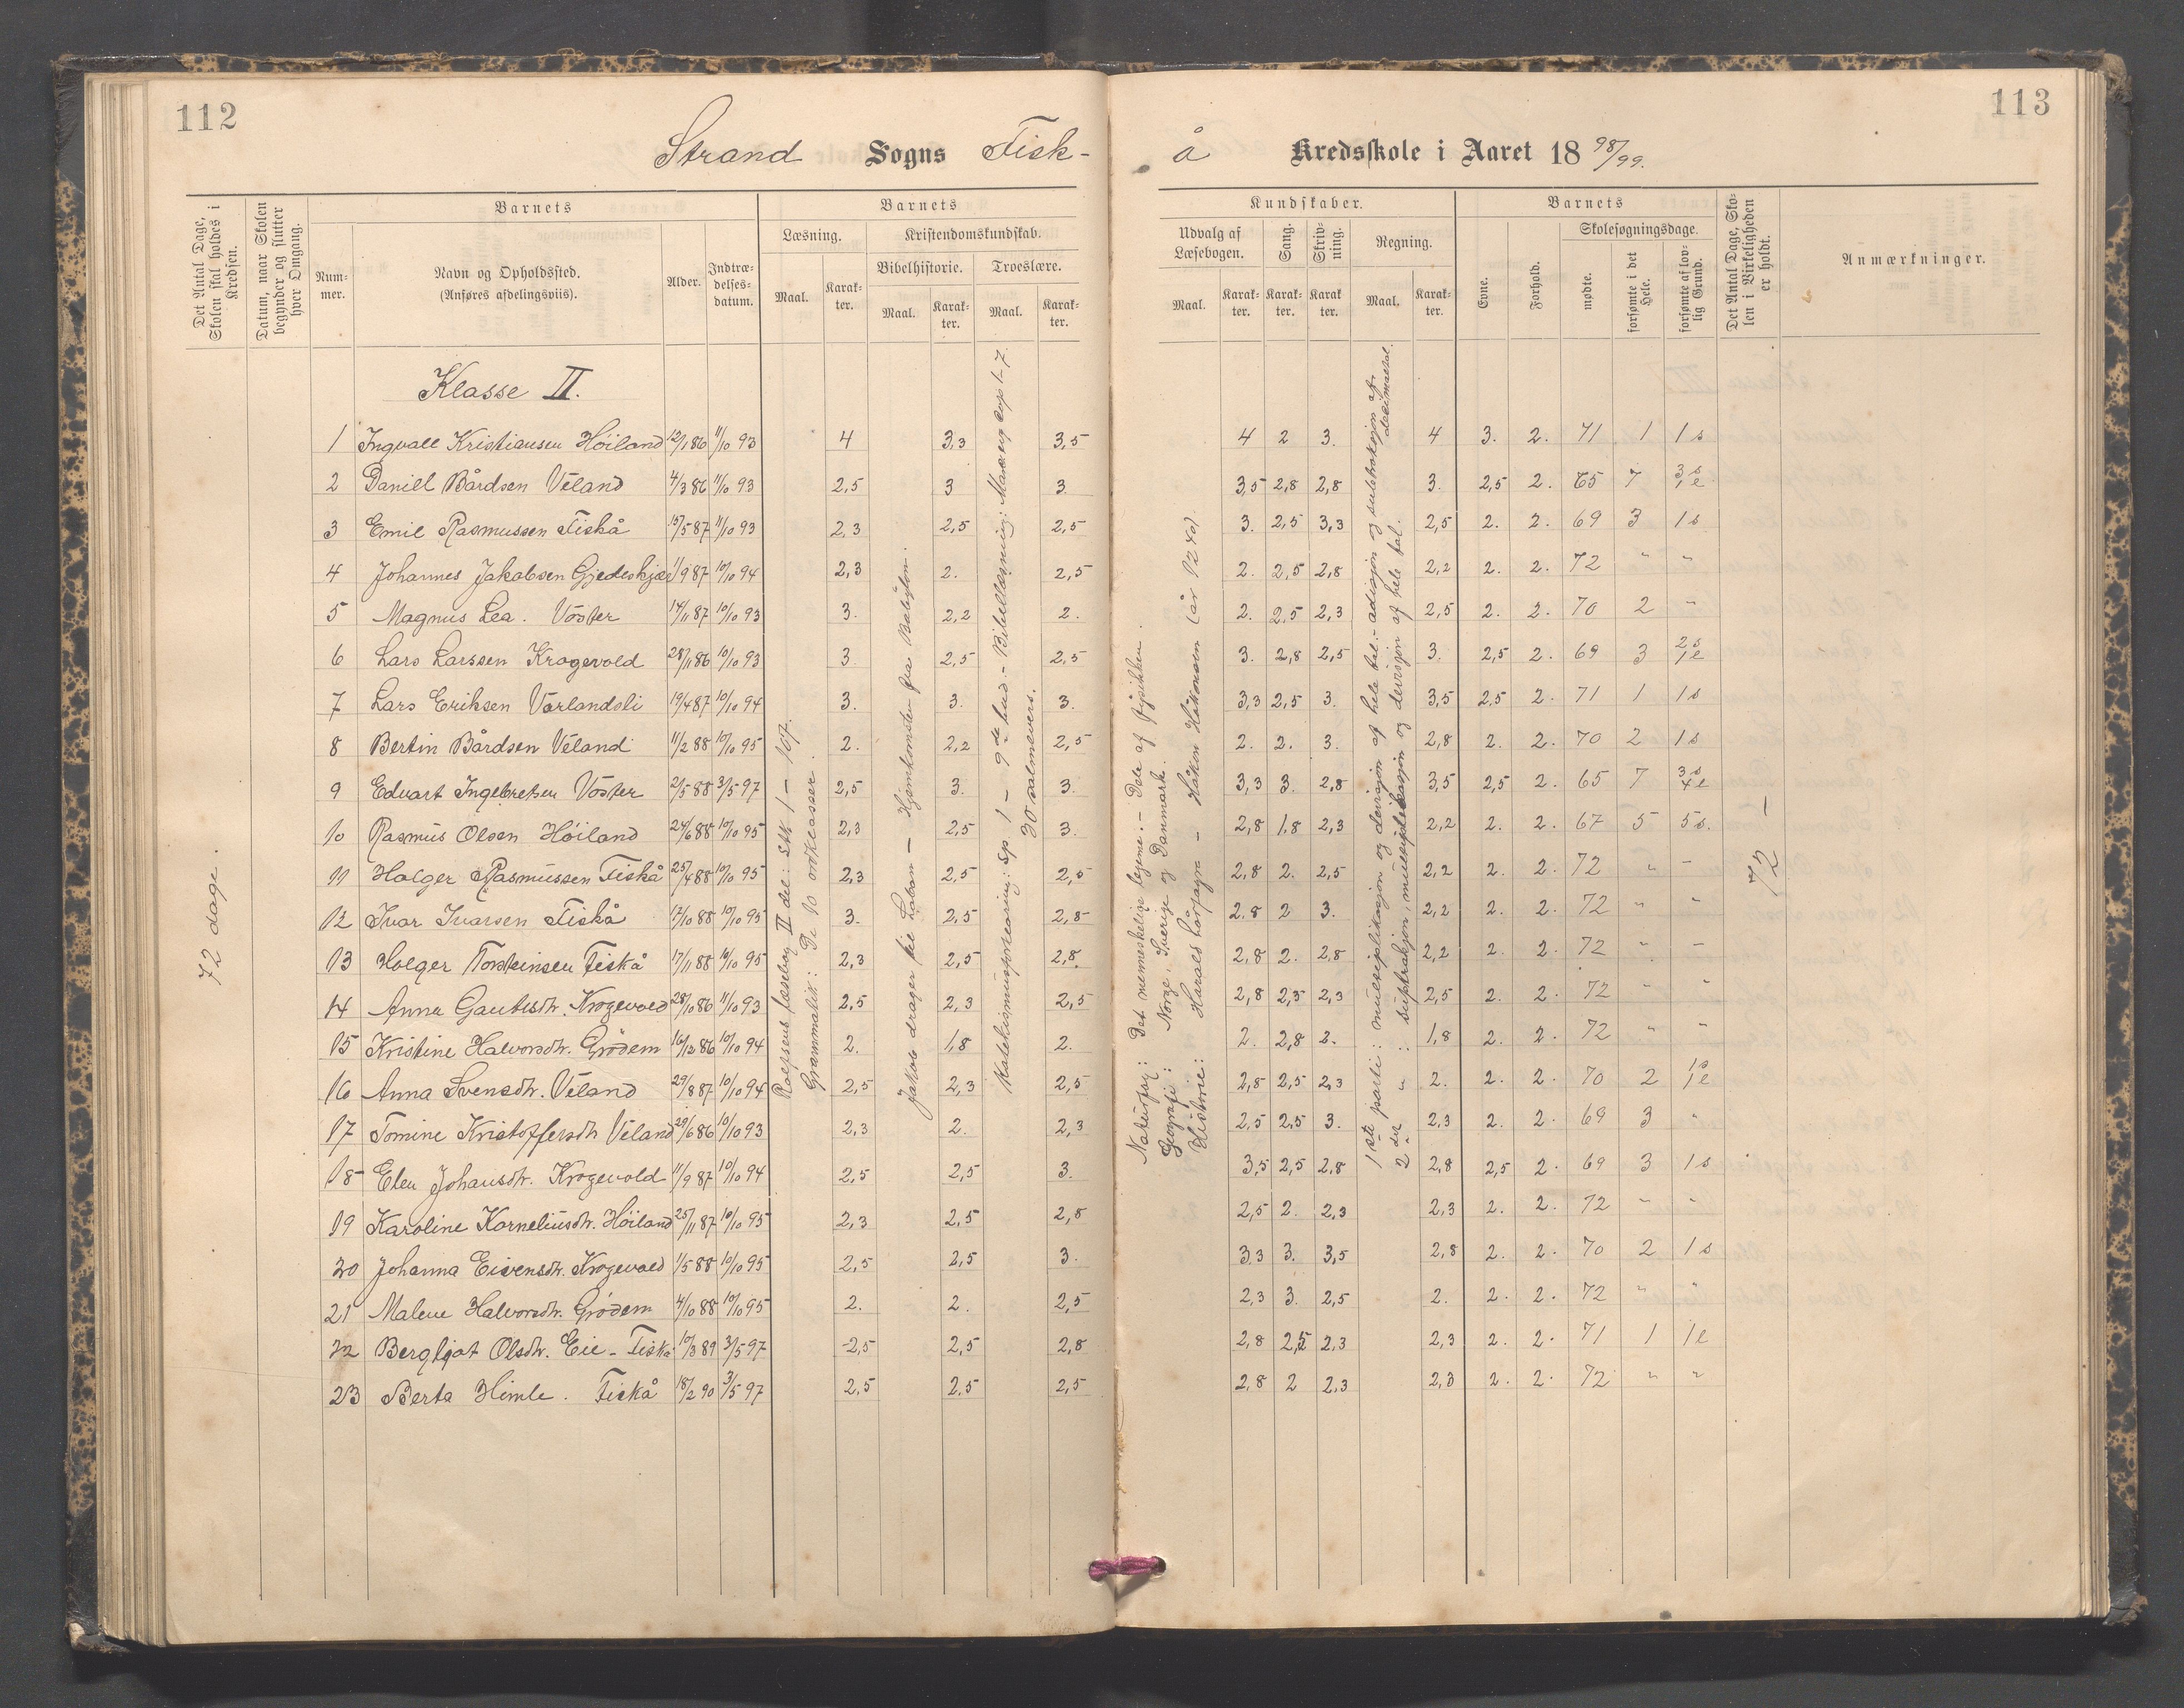 112
Strand Sogns Fisk-
Det Antal Dage, Skolen skal holdes i Kredsen.
Datum, naar Skolen begynder og slutter hver Omgang.
Barnets
Num-mer.
Navn og Opholdssted. (Anføres afdelingsviis).
Alder.
Indtræ-delses-datum.
Barnets
Læsning.
Kristendomskundskab.
Bibelhistorie.
Troeslære.
Maal.
Karak-ter.
Maal.
Karak-ter.
Maal.
Karak-ter.
72 dage.
Klasse II.
1 Ingvall Kristiansen Höiland 12/1 86 11/10 93 4 3,3 3,5
2 Daniel Bårdsen Veland 4/3 86 11/10 93 2,5 3 3.
3 Emil Rasmussen Fiskå 15/5 87 11/10 93 2,3 2,5 2,5
4 Johannes Jakobsen Gjedeskjær 1/9 87 10/10 94 2,3 2. 2,5
5 Magnus Lea. Voster 14/11 87 10/10 93 3. 2,2 2.
6 Lars Larssen Krogevold 28/11 86 10/10 93 3. 2,5 2,5
7 Lars Eriksen Varlandsli 19/4 87 10/10 94 3. 3. 3.
8 Bertin Bårdsen Veland 11/2 88 10/10 95 2. 2,2 2,5
9 Edvart Ingebretsen Voster 2/5 88 3/5 97 2,5 3. 3.
10 Rasmus Olsen Höiland 24/6 88 10/10 95 2,3 2,5 3.
11 Holger Rasmussen Fiskå 25/4 88 10/10 95 2,3 2,5 2,5
12 Ivar Ivarsen Fiskå 17/10 88 10/10 95 3. 2,5 2,8
13 Holger Torsteinsen Fiskå 17/11 88 10/10 95 2,3 2,5 2,8.
14 Anna Gautesdtr. Krogevold 28/10 86 11/10 93 2,5 2,3 2,5
15 Kristine Halvorsdtr. Grödem 16/12 86 10/10 94 2. 1,8 2.
16 Anna Svensdtr. Veland 29/8 87 10/10 94 2,5 2,3 2,5
17 Tomine Kristoffersdtr Veland 29/6 86 10/10 93 2,3 2. 2,3
18 Elen Johansdtr. Krogevold 11/9 87 10/10 94 2,5 2,5 3.
19 Karoline Korneliusdtr. Höiland 25/11 87 10/10 95 2,3 2,5 2,8
20 Johanna Eivensdtr. Krogevold 1/5 88 10/10 95 2,5 2,5 3.
21 Malene Halvorsdtr. Grödem 4/10 88 10/10 95 2. 2. 2,5
22 Bergljot Olsdtr. Eie - Fiskå 10/3 89 3/5 97 2,5 2,5 2,8
23 Berta Himle. Fiskå 18/2 90 3/5 97 2,5 2,5 2,5
Rolfsens læsebog II del: Stk 1 - 107.
Grammatik: De 10 ordklasser.
Jakob drager fra Laban - Hjemkomsten fra Babylon.
Katekismusforklaring: Sp 1 - 9de bud. - Bibellæsning: Markus evg kap 1-7.
30 salmevers.
113
å Kredsskole i Aaret 1898/99.
Kundskaber.
Udvalg af Læsebogen.
Sang.
Skriv-ning.
Regning.
Maal.
Karak-ter.
Karak-ter.
Karak-ter.
Maal.
Karak-ter.
Barnets
Evne.
Forhold.
Skolesøgningsdage.
mødte.
forsømte i det Hele.
forsømte af lov-lig Grund.
Det Antal Dage, Sko-len i Virkeligheden er holdt.
Anmærkninger.
Naturfag: Det menneskelige legeme. - Dele af fysikken.
Geografi: Norge, Sverige og Danmark.
Historie: Harals hårfagre - Håkon Håkonsen (år 1240)
1ste parti: multiplikasjon og divisjon af hele tal. - adisjon og subtraksjon af decimaltal.
2det " : subtraksjon, multiplikasjon og divisjon af hele tal.
4 2 3. 4 3. 2. 71 1 1s
3,5 2,8 2,8 3. 2,5 2. 65 7 3s 1l
3. 2,5 3,3 2,5 2. 2. 69 3 1s
2. 2,5 2,8 2,2 2. 2. 72 " "
2. 2,5 2,3 2,5 2. 2. 70 2 "
3. 2,8 2,5 3. 2,5 2. 69 3 2s 1l
3,3 2,5 3. 3,5 2,5 2. 71 1 1s
2. 2. 3. 2,8 2. 2. 70 2 1s
3,3 3. 2,8 3,5 2,5 2. 65 7 3s 4l
2,8 1,8 2,3 2,2 2. 2. 67 5 5s.
2,8 2. 2,5 2,2 2. 2. 72 " "
2,8 2 3. 2,2 2. 2. 72 " "
2,8 2. 2,8 2,2 2. 2. 72 " "
2,8 2,5 2,3 2,5 2. 2. 72 " "
2. 2,8 2. 1,8 2. 2. 72 " "
2,8 2,5 2,3 2. 2. 2. 70 2 1s 1l
2,5 2,5 3. 2,3 2. 2. 69 3 "
3,5 2,5 2,8 2,8 2,5 2. 69 3 1s
2,5 2. 2,3 2,3 2. 2. 72 " "
3,3 3. 3,5 2,8 2. 2. 70 2 1s
2,3 3. 2,5 2. 2. 2. 72 " "
2,8 2,5 2,3 2,3 2. 2. 71 1 1l
2,8 2 2,3 2,3 2. 2. 72 " "
72 -